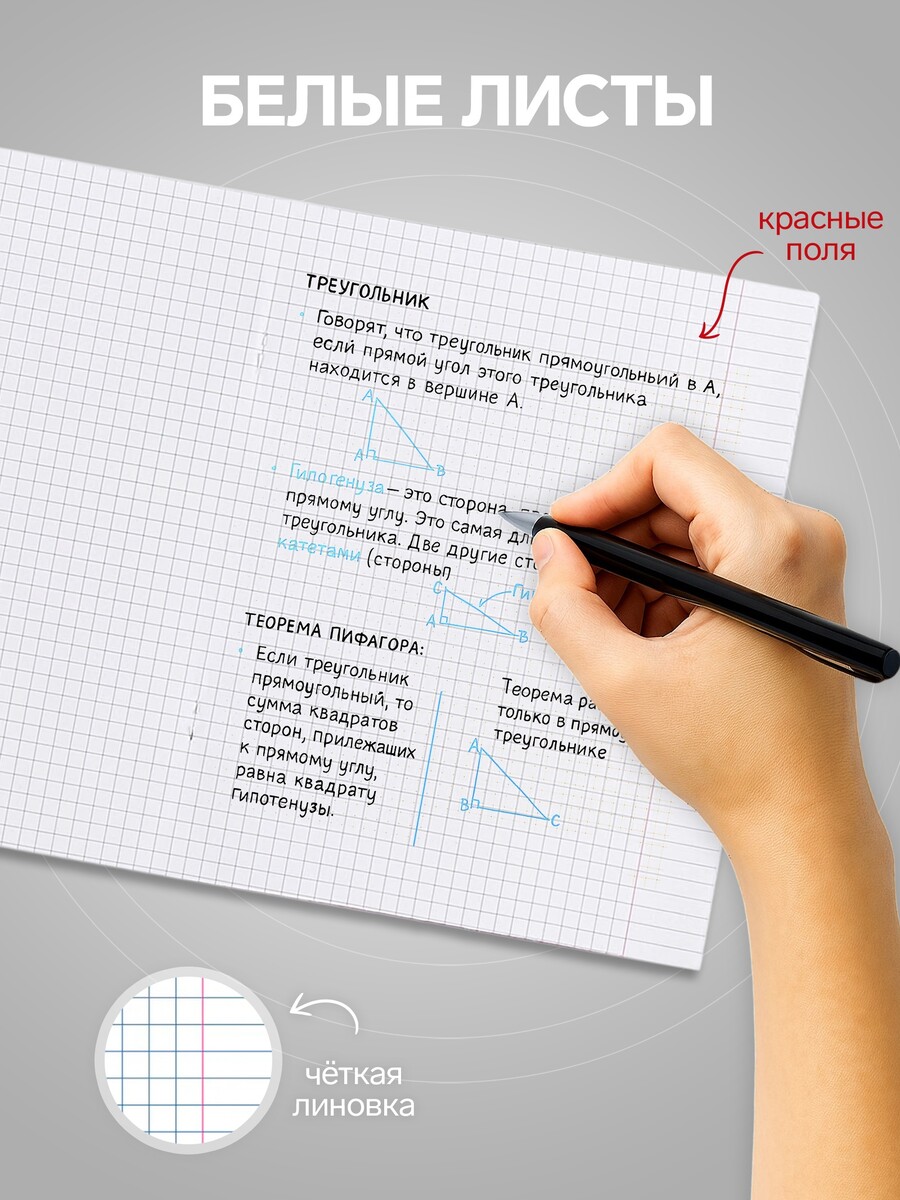 БЕЛЫЕ ЛИСТЫ
красные
поля
ТРЕУГОЛЬНИК
• Говорят, что треугольник прямоугольный в А,
если прямой угол этого треугольника
находится в вершине А.
А
А
В
• Гипотенуза — это сторона,
прямому углу. Это самая
треугольника. Две другие
катетами (стороны
С
А
В
ТЕОРЕМА ПИФАГОРА:
• Если треугольник
прямоугольный, то
сумма квадратов
сторон, прилежаших
к прямому углу,
равна квадрату
Гипотенузы.
Теорема
только в
треугольнике
А
В
С
чёткая
линовка